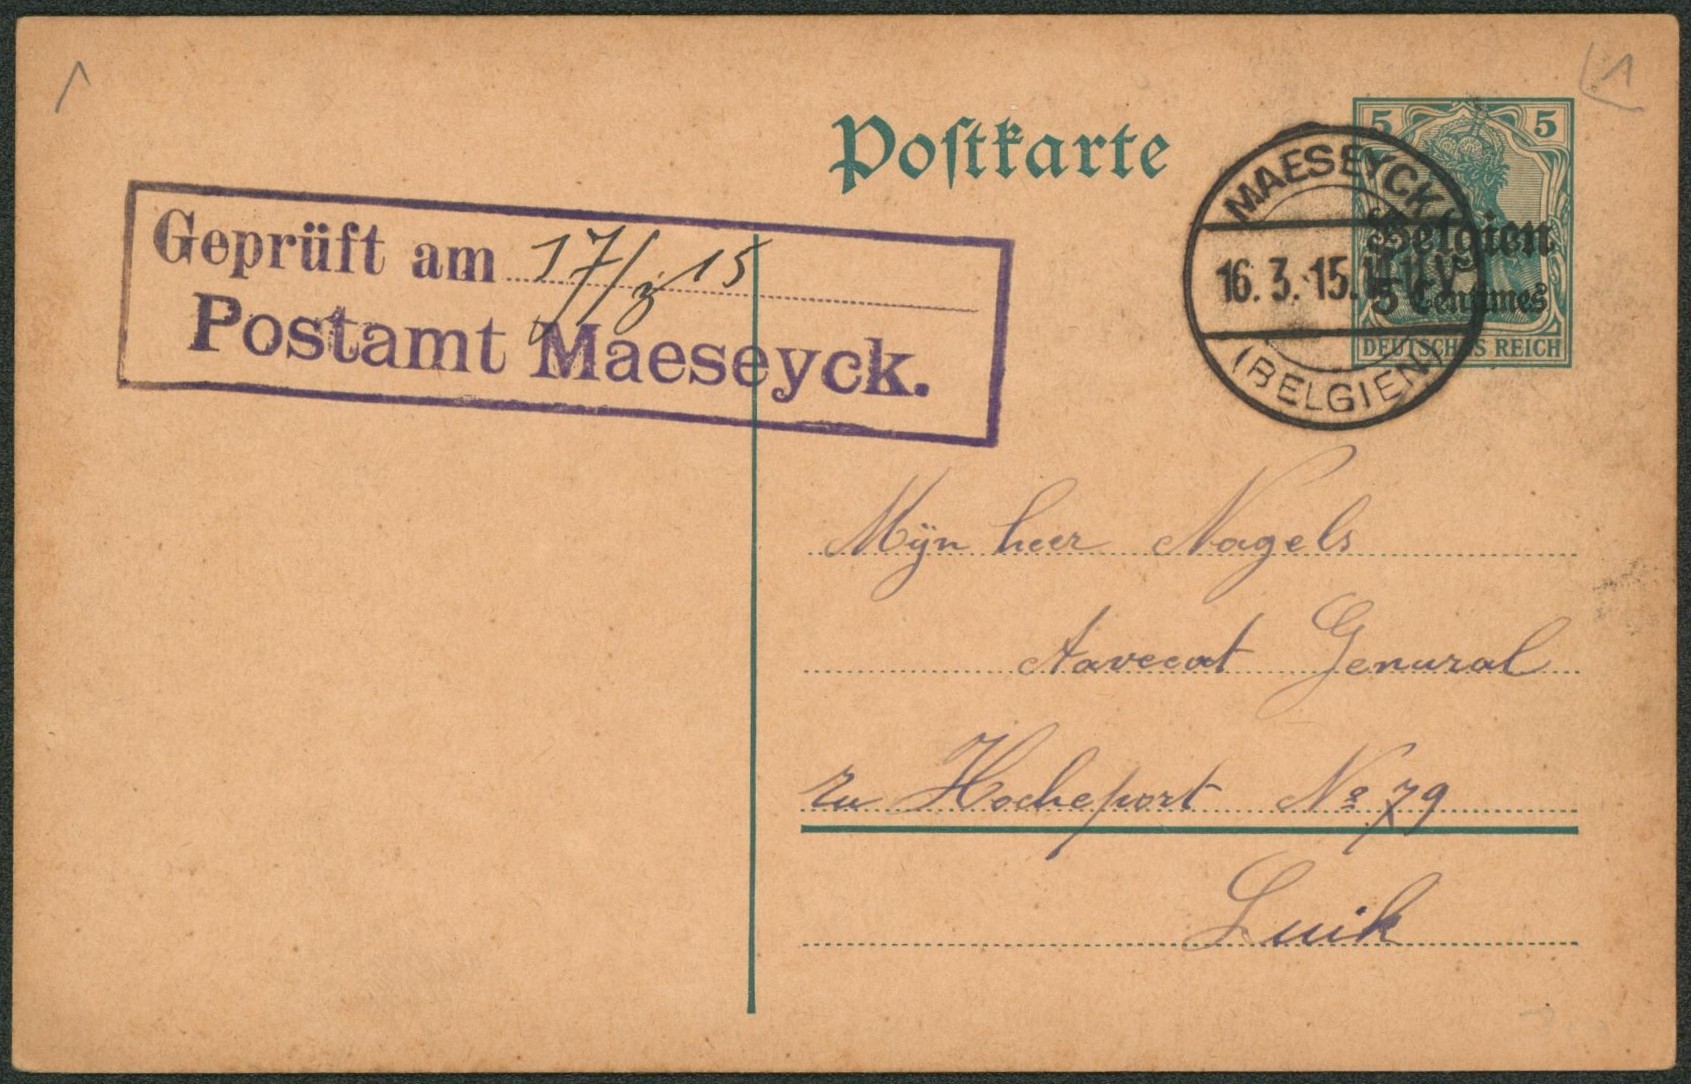 Postkarte
5 5
Belgien
5 Centimes
DEUTSCHES REICH
MAESEYCK
16. 3. 15.
(BELGIEN)
Geprüft am 17/3 15
Postamt Maeseyck.
Mÿn heer Nagels
Aavecat Genural
Ru Hocheport Nº 79
Luik